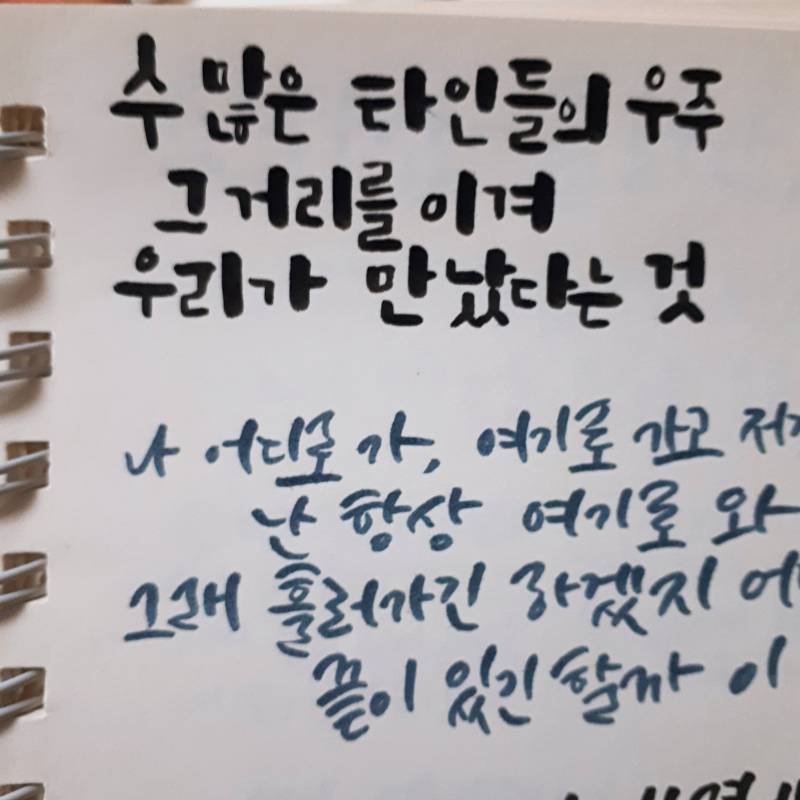 수 많은 타인들의 우주
그 거리를 이겨
우리가 만났다는 것
나 어디로 가, 여기로 가고
난 항상 여기로 와
그래 흘러가긴 하겠지
끝이 있긴 할까 이